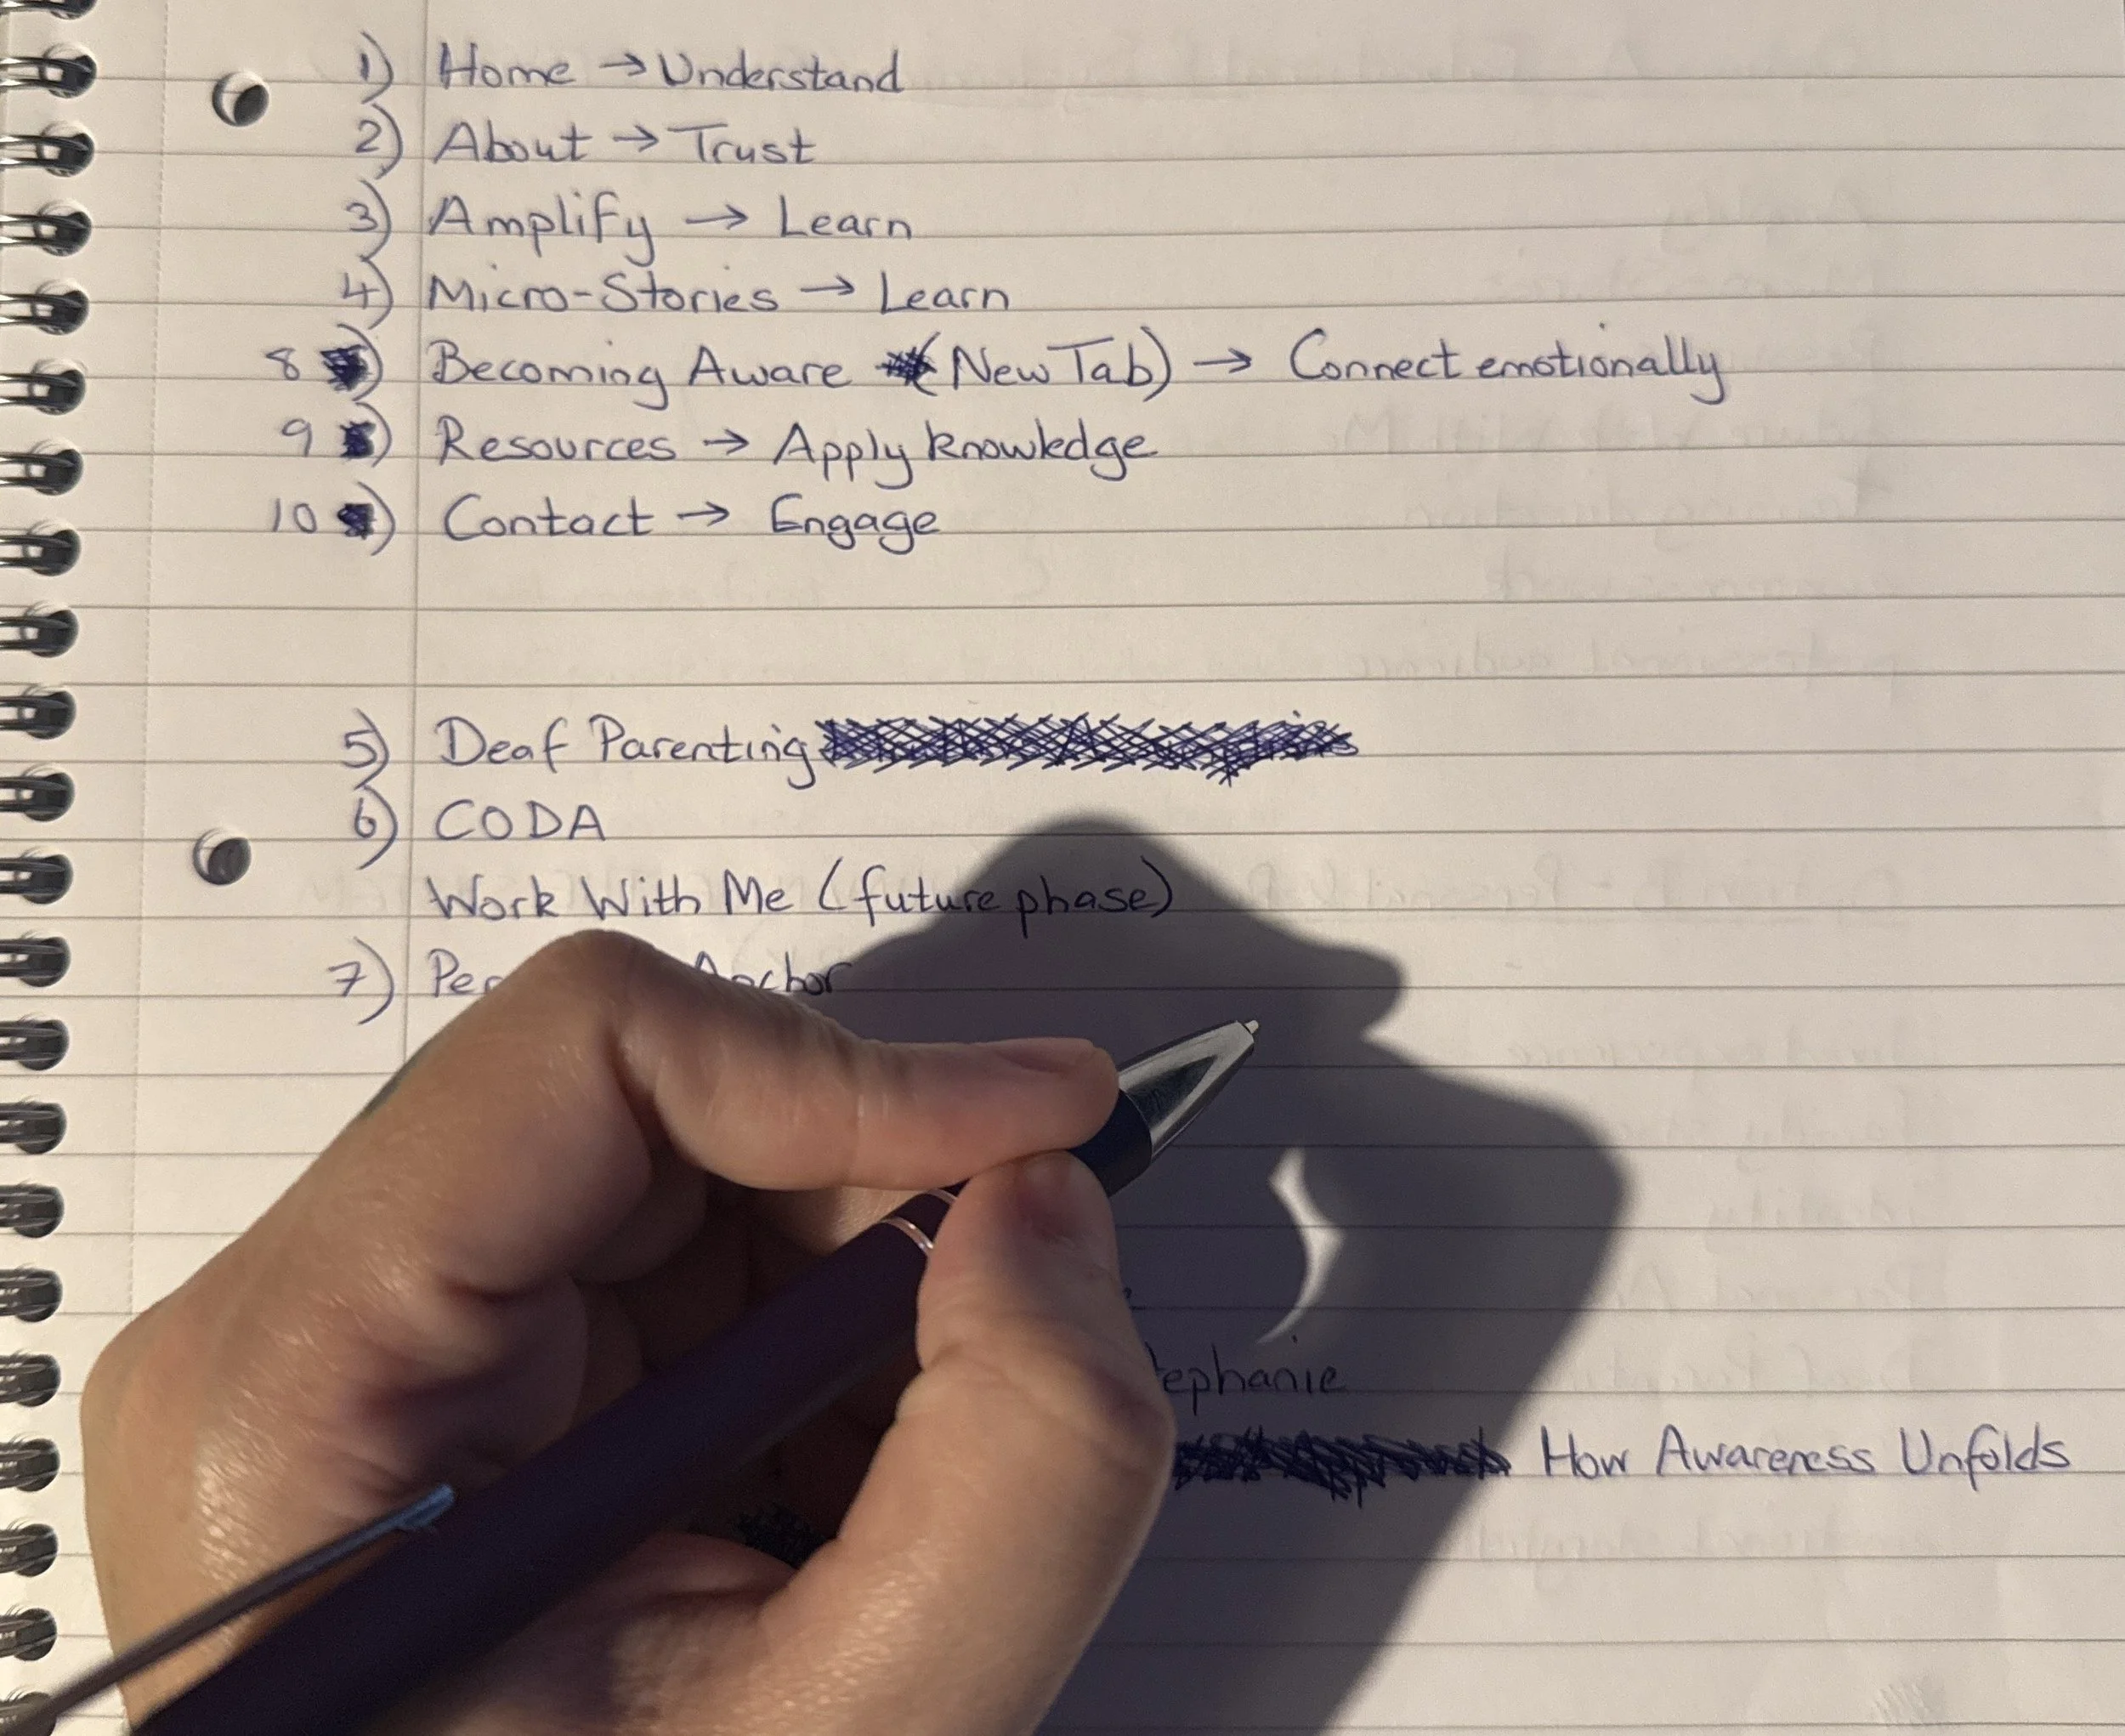 1) Home → Understand
2) About → Trust
3) Amplify → Learn
4) Micro-Stories → Learn
8) Becoming Aware (New Tab) → Connect emotionally
9) Resources → Apply knowledge
10) Contact → Engage
5) Deaf Parenting
6) CODA
Work With Me (future phase)
7) Anchor
How Awareness Unfolds